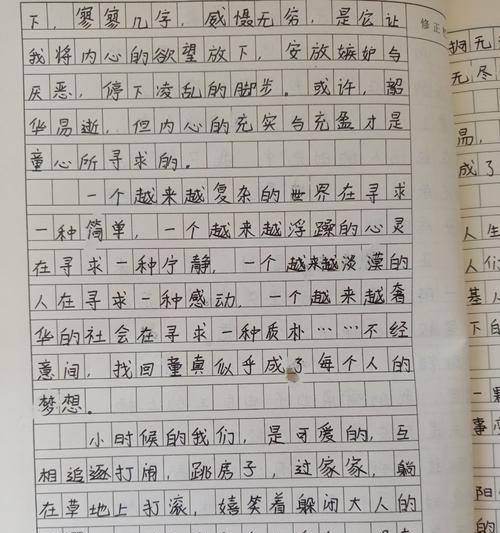 下，寥寥几字，威慑无穷，是它让
我将内心的欲望放下，安放嫉妒与
厌恶，停下凌乱的脚步。或许，韶
华易逝，但内心的充实与充盈才是
童心所寻求的。
一个越来越复杂的世界在寻求
一种简单，一个越来越浮躁的心灵
在寻求一种宁静，一个越来越淡漠的
人在寻求一种感动，一个越来越奢
华的社会在寻求一种质朴……不经
意间，找回童真似乎成了每个人的
梦想。
小时候的我们，是可爱的，互
相追逐打闹，跳房子，过家家，躺
在草地上打滚，嬉笑着躲闭大人的
修正
无
无尽
易，
成了
人生
人们
基人
下的
一颗
事
阳
的